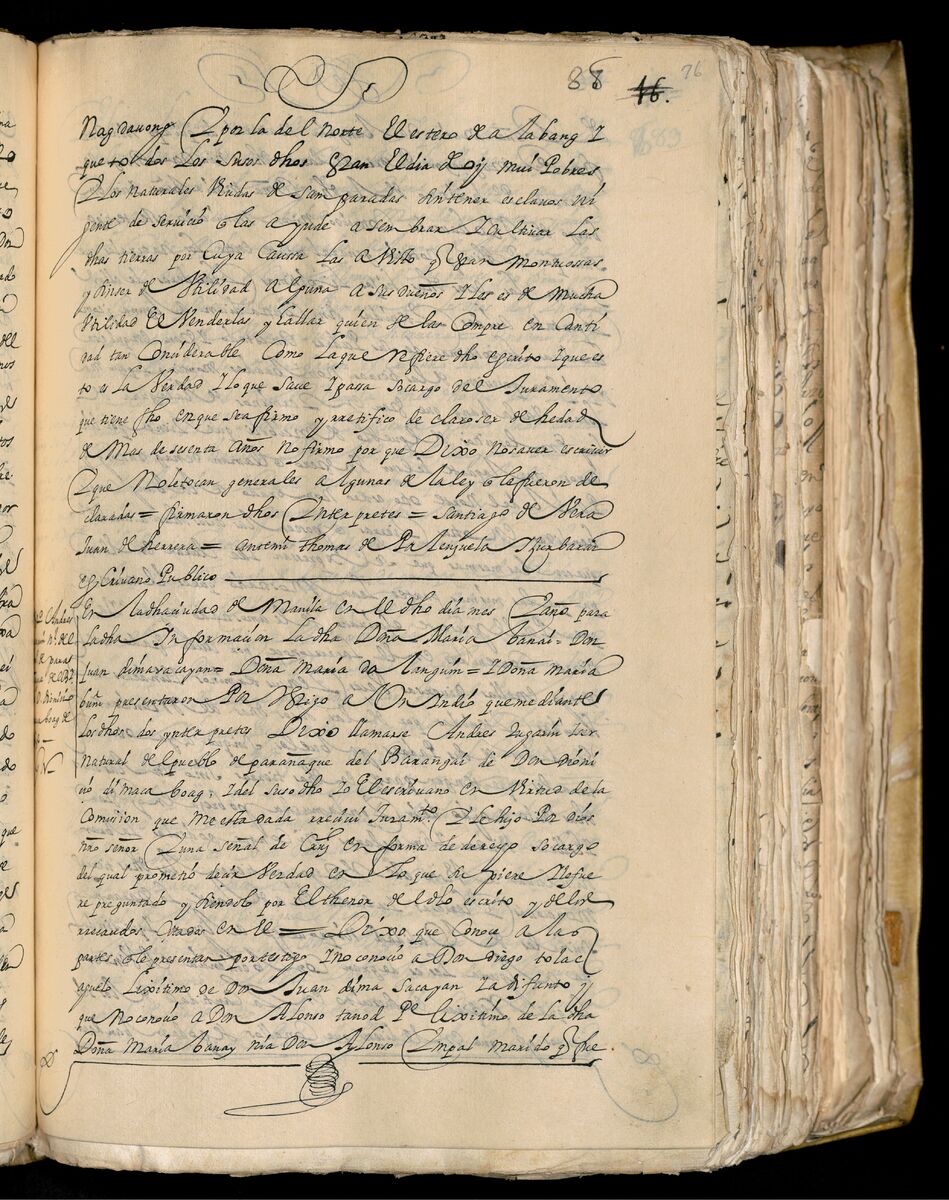 88 76
16.
Nagdauong Y por la del norte El estero de alabang Y
que todos Los susos dhos Eran El dia de oy mui Pobres
Y los naturales Viudas desamparadas sin tener esclauos ni
gente de seruicio q̃ las ayude a sembrar Y cultiuar Las
dhas tierras por Cuya Caussa Las a Visto q̃ Eran Montuossas
y sin ser de Vtilidad alguna a sus dueños Y les es de Mucha
Vtilidad El Venderlas y hallar quien se las Compre en Canti
dad tan Considerable Como La que refiere dho escrito Y que es
to es La Verdad Y lo que saue Y passa socargo del Juramento
que tiene fho en que se afirmo y rretifico declaro ser de hedad
de Mas de sesenta años No firmo por que Dixo No sauer escriuir
Y que No le tocan generales algunas de la ley q̃ le fueron de
claradas = firmaron dhos Ynterpretes = Santiago de Vera
Juan de herrera = antemi Thomas de Palenzuela Y zurbaran
esCriuano Publico
En la dha ciudad de Manila en el dho dia mes Y año para
La dha Informacion La dha Doña Maria banai = Don
Juan dimaracayan = Doña Maria da langum = Y Doña Maria
presentaron Por testigo a Vn Indio que mediante
Los dhos dos ynterpretes Dixo llamarse Andres ser
Natural del pueblo de parañaque del Barangai de Don Dioni
sio dimaca boag, Y del susodho Yo El escriuano en Virtud de la
Comision que me esta dada rreciui Juramto. Y le hiso Por Dios
nro señor Y una señal de Cruz en forma de derecho socargo
del qual prometio decir Verdad en Lo que supiere Y le fue
re preguntado y siendolo por El thenor del dho escrito y de los
rrecaudos Citados en el = Dixo que Conoçe a las
partes q̃ le presentan por testigo Y no conocio a Don diego tolac
aguelo Lixitimo de Don Juan dima sacayan Ya difunto y
que No conocio a Don Alonso tanod Pe lixitimo de la dha
Doña Maria banay ni a Don Alonso Limpal marido q̃ fue.